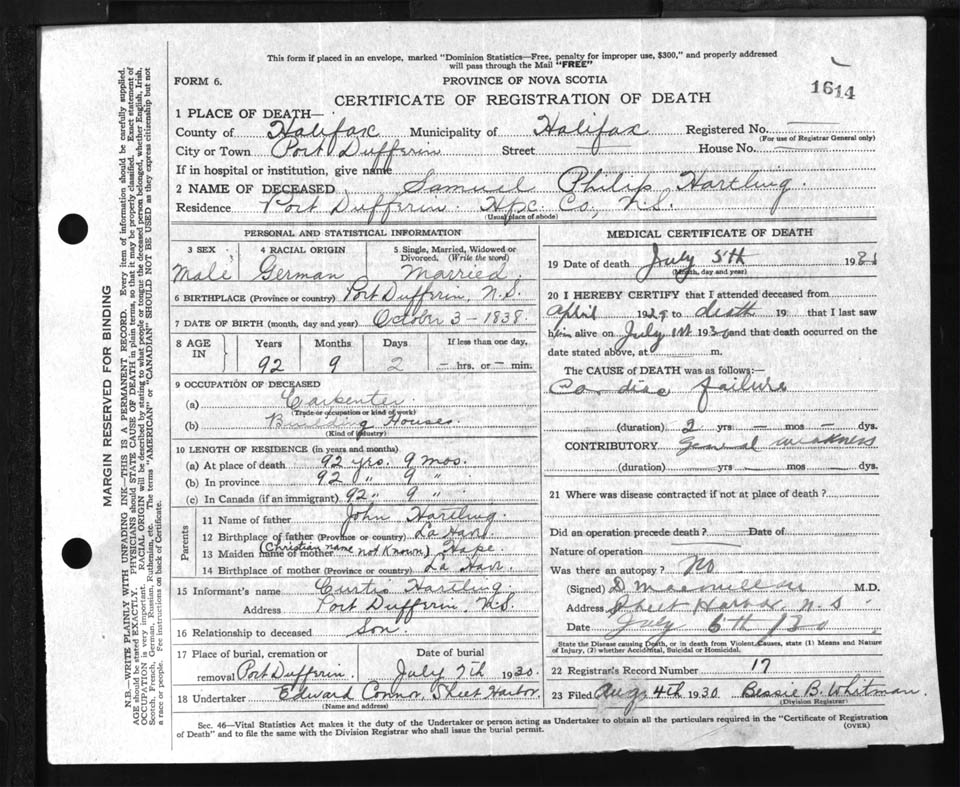 This form if placed in an envelope, marked "Dominion Statistics—Free, penalty for improper use, $300," and properly addressed
will pass through the Mail "FREE"
FORM 6.
PROVINCE OF NOVA SCOTIA
1614
CERTIFICATE OF REGISTRATION OF DEATH
1 PLACE OF DEATH—
County of Halifax Municipality of Halifax Registered No.
(For use of Registrar General only)
City or Town Port Dufferin Street House No.
If in hospital or institution, give name
2 NAME OF DECEASED Samuel Philip Hartling.
Residence Port Dufferin Hfx. Co., N.S.
(Usual place of abode)
PERSONAL AND STATISTICAL INFORMATION
3 SEX 4 RACIAL ORIGIN 5 Single, Married, Widowed or
Divorced. (Write the word)
Male German Married.
6 BIRTHPLACE (Province or country) Port Dufferin, N.S.
7 DATE OF BIRTH (month, day and year) October 3 - 1838.
8 AGE IN Years Months Days If less than one day,
92 9 2 — hrs. or — min.
9 OCCUPATION OF DECEASED
(a) Carpenter
(Trade or occupation or kind of work)
(b) Building Houses.
(Kind of industry)
10 LENGTH OF RESIDENCE (in years and months)
(a) At place of death 92 yrs. 9 mos.
(b) In province 92 " 9 "
(c) In Canada (if an immigrant) 92 " 9 "
Parents
11 Name of father John Hartling.
12 Birthplace of father (Province or country) La Have.
13 Maiden name of mother (Christian name not known) Hape
14 Birthplace of mother (Province or country) La Have.
15 Informant's name Curtis Hartling.
Address Port Dufferin, N.S.
16 Relationship to deceased Son.
17 Place of burial, cremation or Date of burial
removal Port Dufferin. July 7th 1930.
18 Undertaker Edward Connor, Sheet Harbor
(Name and address)
MEDICAL CERTIFICATE OF DEATH
19 Date of death July 5th 193
(Month, day and year)
20 I HEREBY CERTIFY that I attended deceased from
April 1929 to death 19 that I last saw
him alive on July 1st 1930 and that death occurred on the
date stated above, at m.
The CAUSE of DEATH was as follows:
Cardiac failure
(duration) 2 yrs — mos — dys.
CONTRIBUTORY General weakness
(duration) yrs — mos — dys.
21 Where was disease contracted if not at place of death?
Did an operation precede death? Date of
Nature of operation
Was there an autopsy? No
(Signed) M.D.
Address Sheet Harbor N.S
Date July 6th /30
State the Disease causing Death, or in death from Violent Causes, state (1) Means and Nature
of Injury, (2) whether Accidental, Suicidal or Homicidal.
22 Registrar's Record Number 17
23 Filed Aug 4th 1930 Bessie B. Whitman.
(Division Registrar)
Sec. 46—Vital Statistics Act makes it the duty of the Undertaker or person acting as Undertaker to obtain all the particulars required in the "Certificate of Registration
of Death" and to file the same with the Division Registrar who shall issue the burial permit.
(OVER)
MARGIN RESERVED FOR BINDING
N.B.—WRITE PLAINLY WITH UNFADING INK—THIS IS A PERMANENT RECORD. Every item of information should be carefully supplied.
AGE should be stated EXACTLY. PHYSICIANS should STATE CAUSE OF DEATH in plain terms, so that it may be properly classified. Exact statement of
OCCUPATION is very important. RACIAL ORIGIN will be described by stating to what people or tongue the deceased person belonged, whether English, Irish,
Scotch, French, German, Russian, Ruthenian, etc. The terms "AMERICAN" or "CANADIAN" SHOULD NOT BE USED as they express citizenship but not
a race or people. Fee instructions on back of Certificate.